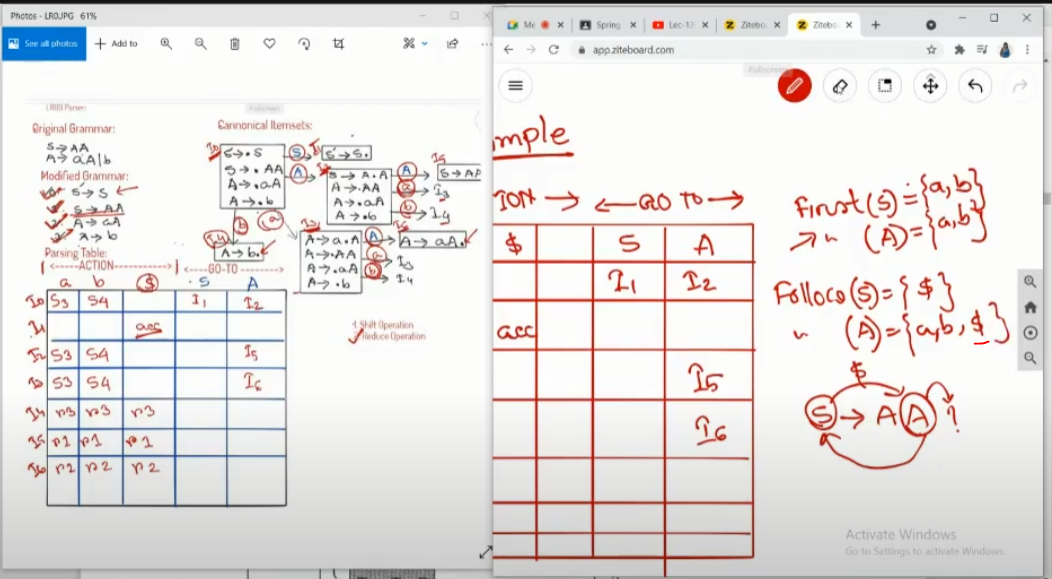 Photos - LR0.JPG 61%
See all photos
Add to
LR(0) Parser:
Original Grammar:
S→AA
A→aA|b
Modified Grammar:
S'→S
S→AA
A→aA
A→b
Cannonical Itemsets:
I0
S'→.S
S→.AA
A→.aA
A→.b
S
I1
S'→S.
A
I2
S→A.A
A→.AA
A→.aA
A→.b
A
I5
S→AA
a
I3
b
I4
b
a
I4
A→b.
I3
A→a.A
A→.AA
A→.aA
A→.b
A
I6
A→aA.
a
I3
b
I4
Parsing Table:
ACTION
GO-TO
a b $ S A
I0 S3 S4 I1 I2
I1 acc
I2 S3 S4 I5
I3 S3 S4 I6
I4 r3 r3 r3
I5 r1 r1 r1
I6 r2 r2 r2
1 Shift Operation
2 Reduce Operation
Me
Spring
Lec-12
Ziteboa
Ziteboa
app.ziteboard.com
Fullscreen
mple
ION → ← GO TO →
$ S A
I1 I2
acc
I5
I6
First(S) = {a, b}
→ " (A) = {a, b}
Follow(S) = { $ }
" (A) = {a, b, $ }
$
S → A A ?
Activate Windows
Go to Settings to activate Windows.